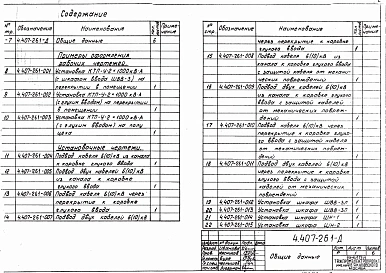 Содержание
№ стр.
Обозначение
Наименование
Примечание
-7 4.407-261-Д Общие данные 6
Примеры оформления
рабочих чертежей.
8 4.407-261-001 Установка КТП-У-2×1000 кВ·А
(с шкафом ввода ШВВ-3) на
перекрытии в помещении 1
9 4.407-261-002 Установка КТП-У-2×1000 кВ·А
(с глухим вводом) на перекрытии
в помещении 1
10 4.407-261-003 Установка КТП-У-2×1000 кВ·А
(с глухим вводом) на полу
цеха 1
Установочные чертежи.
11 4.407-261-004 Подвод кабеля 6(10) кВ из канала
к коробке глухого ввода 1
12 4.407-261-005 Подвод двух кабелей 6(10) кВ
из канала к коробке
глухого ввода 1
13 4.407-261-006 Подвод кабеля 6(10) кВ через
перекрытие к коробке
глухого ввода 1
14 4.407-261-007 Подвод двух кабелей 6(10) кВ
№ стр.
Обозначение
Наименование
Примечание
через перекрытие к коробке
глухого ввода 1
15 4.407-261-008 Подвод кабеля 6(10) кВ из
канала к коробке глухого ввода
с защитой кабеля от механических
повреждений 1
16 4.407-261-009 Подвод двух кабелей 6(10) кВ из
канала к коробке глухого
ввода с защитой кабелей
от механических повреждений 1
17 4.407-261-010 Подвод кабеля 6(10) кВ через
перекрытие к коробке глухого
ввода с защитой кабеля
от механических повреждений 1
18 4.407-261-011 Подвод двух кабелей 6(10) кВ
через перекрытие к коробке
глухого ввода с защитой
кабелей от механических
повреждений 1
19 4.407-261-012 Установка шкафа
20 4.407-261-013 Установка шкафа
21 4.407-261-014 Установка шкафа
22 4.407-261-015 Установка шкафа
4.407-261-Д
Общие данные